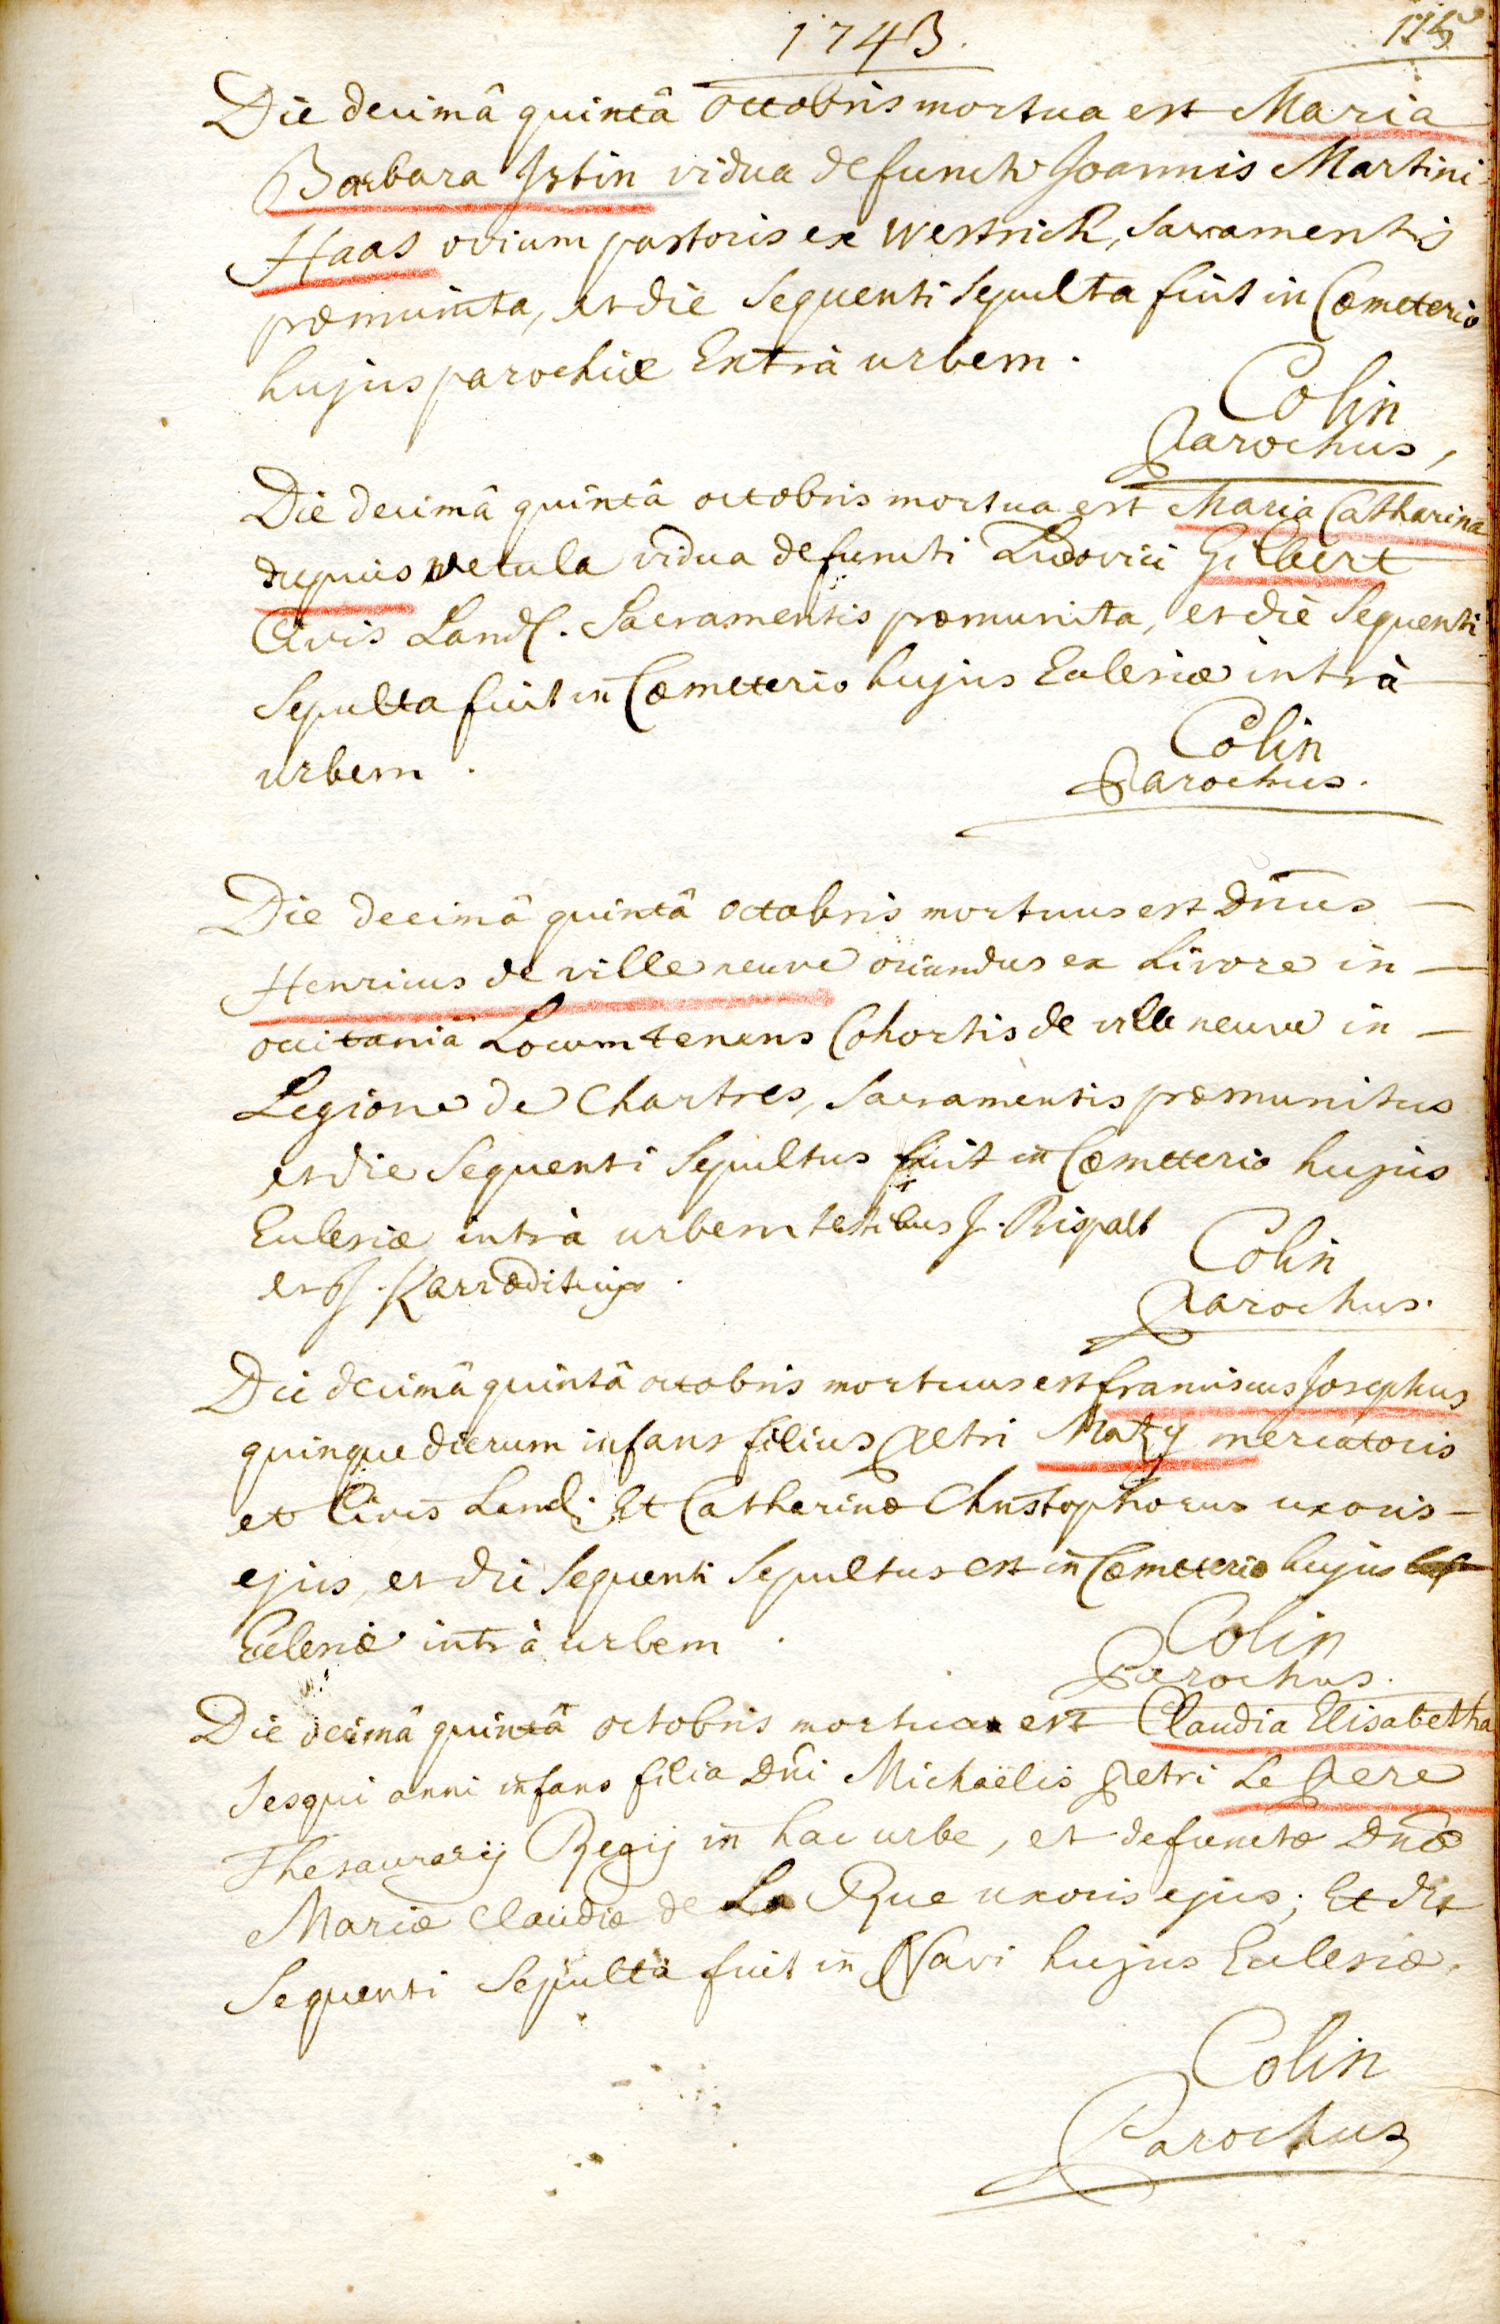 1743.
115
Die decimâ quintâ octobris mortua est Maria
Barbara Istin vidua defuncti Joannis Martini
Haas ovium pastoris ex Westrich, sacramentis
præmunita, et die sequenti sepulta fuit in Cœmeterio
hujus parochiæ Extrà urbem.
Colin
Parochus,
Die decimâ quintâ octobris mortua est Maria Catharina
dupuis vetula vidua defuncti Ludovici Gilbert
Civis Land. Sacramentis præmunita, et die sequenti
sepulta fuit in Cœmeterio hujus Eclesiæ intrà
urbem.
Colin
Parochus.
Die decimâ quintâ octobris mortuus est Dnus
Henricus de villeneuve oriundus ex Livore in
occitaniâ Locumtenens Cohortis de villeneuve in
Legione de Chartres, sacramentis præmunitus
et die sequenti sepultus fuit in Cœmeterio hujus
Eclesiæ intrà urbem testibus J. Rispalt
et J.
Colin
Parochus.
Die decimâ quintâ octobris mortuus est franciscus Josephus
quinque dierum infans filius Petri Matzy mercatoris
et Civis Land. Et Catharinæ Christophorus uxoris
ejus, et die sequenti sepultus est in Cœmeterio hujus
Eclesiæ intrà urbem.
Colin
Parochus.
Die decimâ quintâ octobris mortua est Claudia Elisabetha
sesqui anni infans filia Dni Michaëlis Petri Le Pere
Thesaurarij Regij in hac urbe, et defunctæ Dnæ
Mariæ Claudiæ de La Rue uxoris ejus; Et die
sequenti sepulta fuit in Navi hujus Eclesiæ.
Colin
Parochus